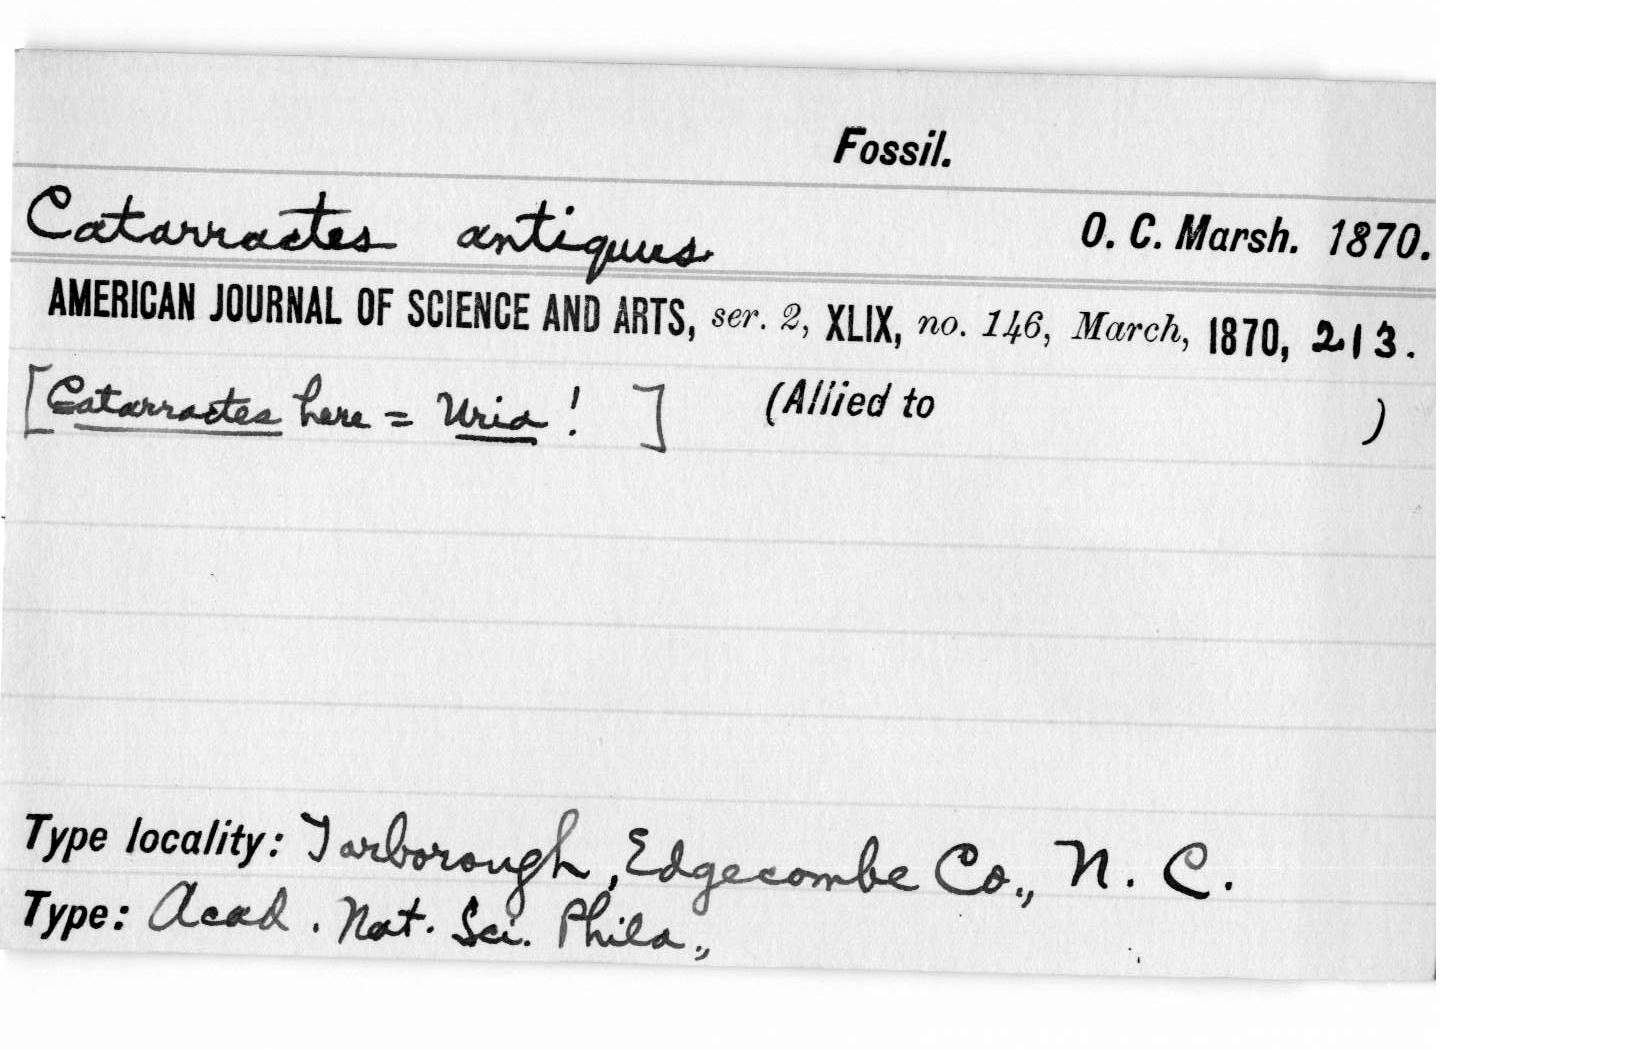 Fossil.
Catarractes antiquus. O. C. Marsh. 1870.
AMERICAN JOURNAL OF SCIENCE AND ARTS, ser. 2, XLIX, no. 146, March, 1870, 213.
[Catarractes here = Uria! ] (Allied to )
Type locality: Tarborough, Edgecombe Co., N. C.
Type: Acad. Nat. Sci. Phila.,